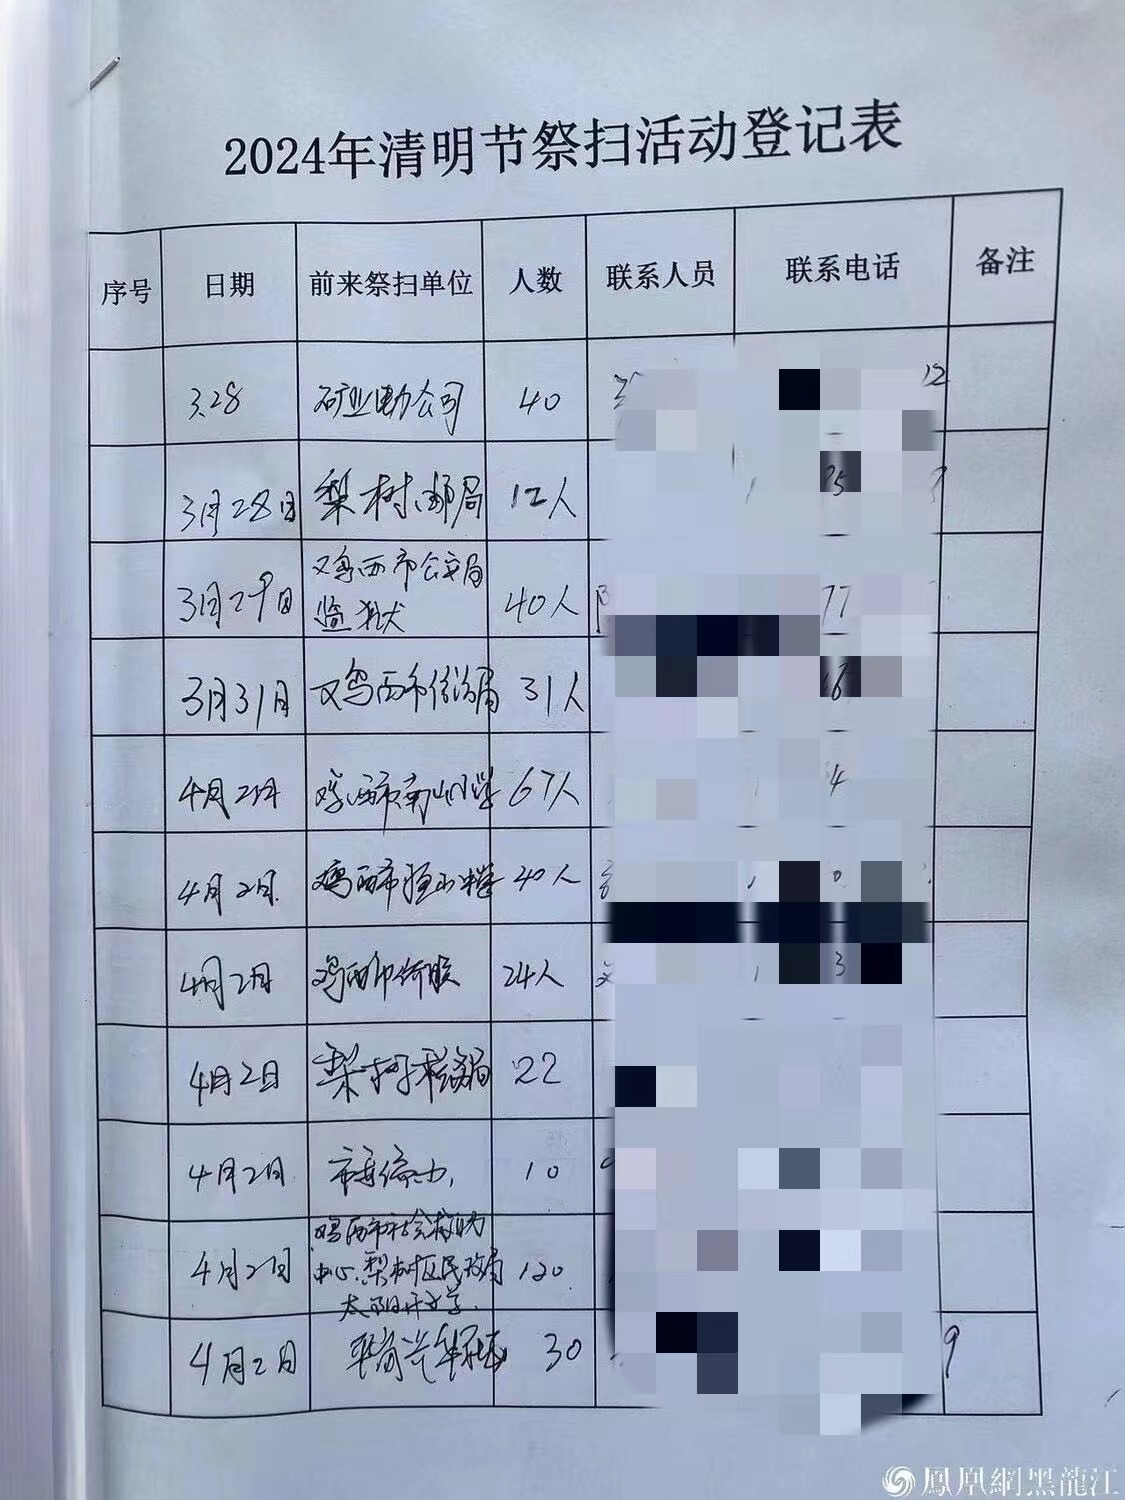 2024年清明节祭扫活动登记表
序号 日期 前来祭扫单位 人数 联系人员 联系电话 备注
3.28 矿业电力公司 40 12
3月28日 梨树邮局 12人
3月29日 鸡西市公安局 40人 77
监狱
3月31日 鸡西市 31人 16
4月2日 鸡西市南山小学 67人 4
4月2日 鸡西市 40人 0
4月2日 鸡西市侨联 24人 3
4月2日 梨树税务局 22
4月2日 市委 10
4月2日 鸡西市社会救助 120
中心、梨树区民政局
太阳升小学
4月2日 30 9
鳳凰網黑龍江